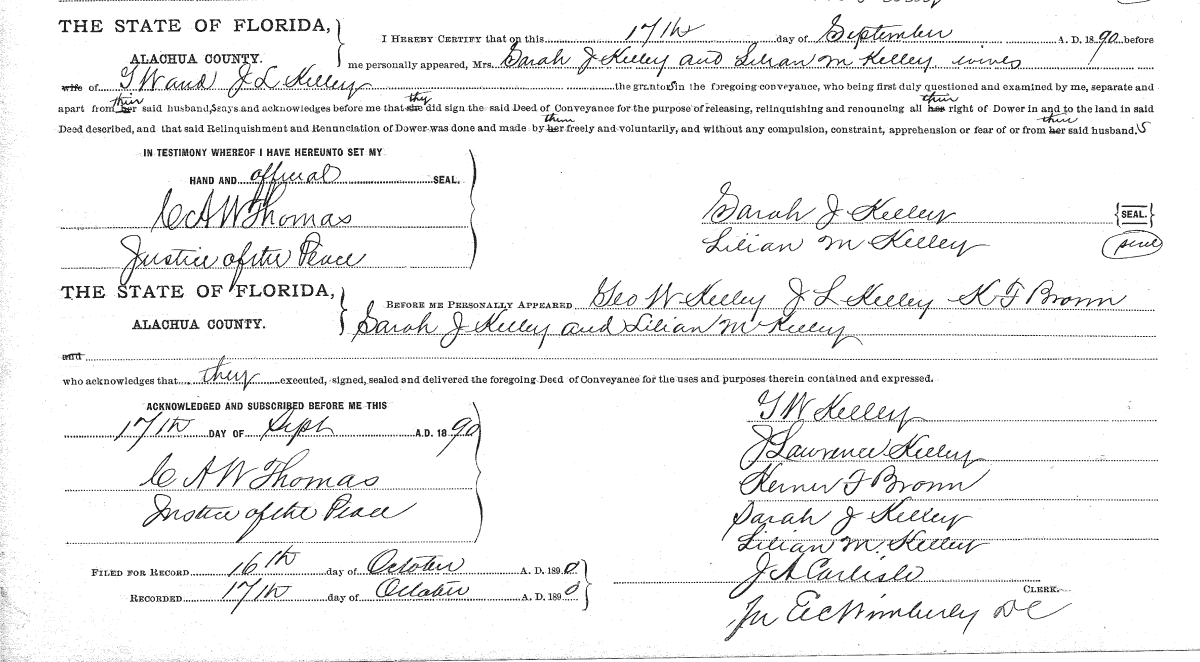 THE STATE OF FLORIDA,
ALACHUA COUNTY.
I HEREBY CERTIFY that on this 17th day of September A. D. 1890 before
me personally appeared, Mrs. Sarah J Kelley and Lilian M Kelley wives
wife of G W and J L Kelley the grantors in the foregoing conveyance, who being first duly questioned and examined by me, separate and
apart from her their said husband,s says and acknowledges before me that she they did sign the said Deed of Conveyance for the purpose of releasing, relinquishing and renouncing all her their right of Dower in and to the land in said
Deed described, and that said Relinquishment and Renunciation of Dower was done and made by her them freely and voluntarily, and without any compulsion, constraint, apprehension or fear of or from her their said husband.s
IN TESTIMONY WHEREOF I HAVE HEREUNTO SET MY
HAND AND official SEAL.
C A W Thomas
Justice of the Peace
Sarah J Kelley {SEAL.}
Lilian M Kelley seal
THE STATE OF FLORIDA,
ALACHUA COUNTY.
BEFORE ME PERSONALLY APPEARED Geo W Kelley J L Kelley K F Brown
Sarah J Kelley and Lilian M Kelley
and
who acknowledges that they executed, signed, sealed and delivered the foregoing Deed of Conveyance for the uses and purposes therein contained and expressed.
ACKNOWLEDGED AND SUBSCRIBED BEFORE ME THIS
17th DAY OF Sept A.D. 1890
C A W Thomas
Justice of the Peace
G W Kelley
J Lawrence Kelley
F Brown
Sarah J Kelley
Lilian M. Kelley
FILED FOR RECORD 16th day of October A. D. 1890
RECORDED 17th day of October A. D. 1890
J A Carlisle
CLERK.
Wimberly DC